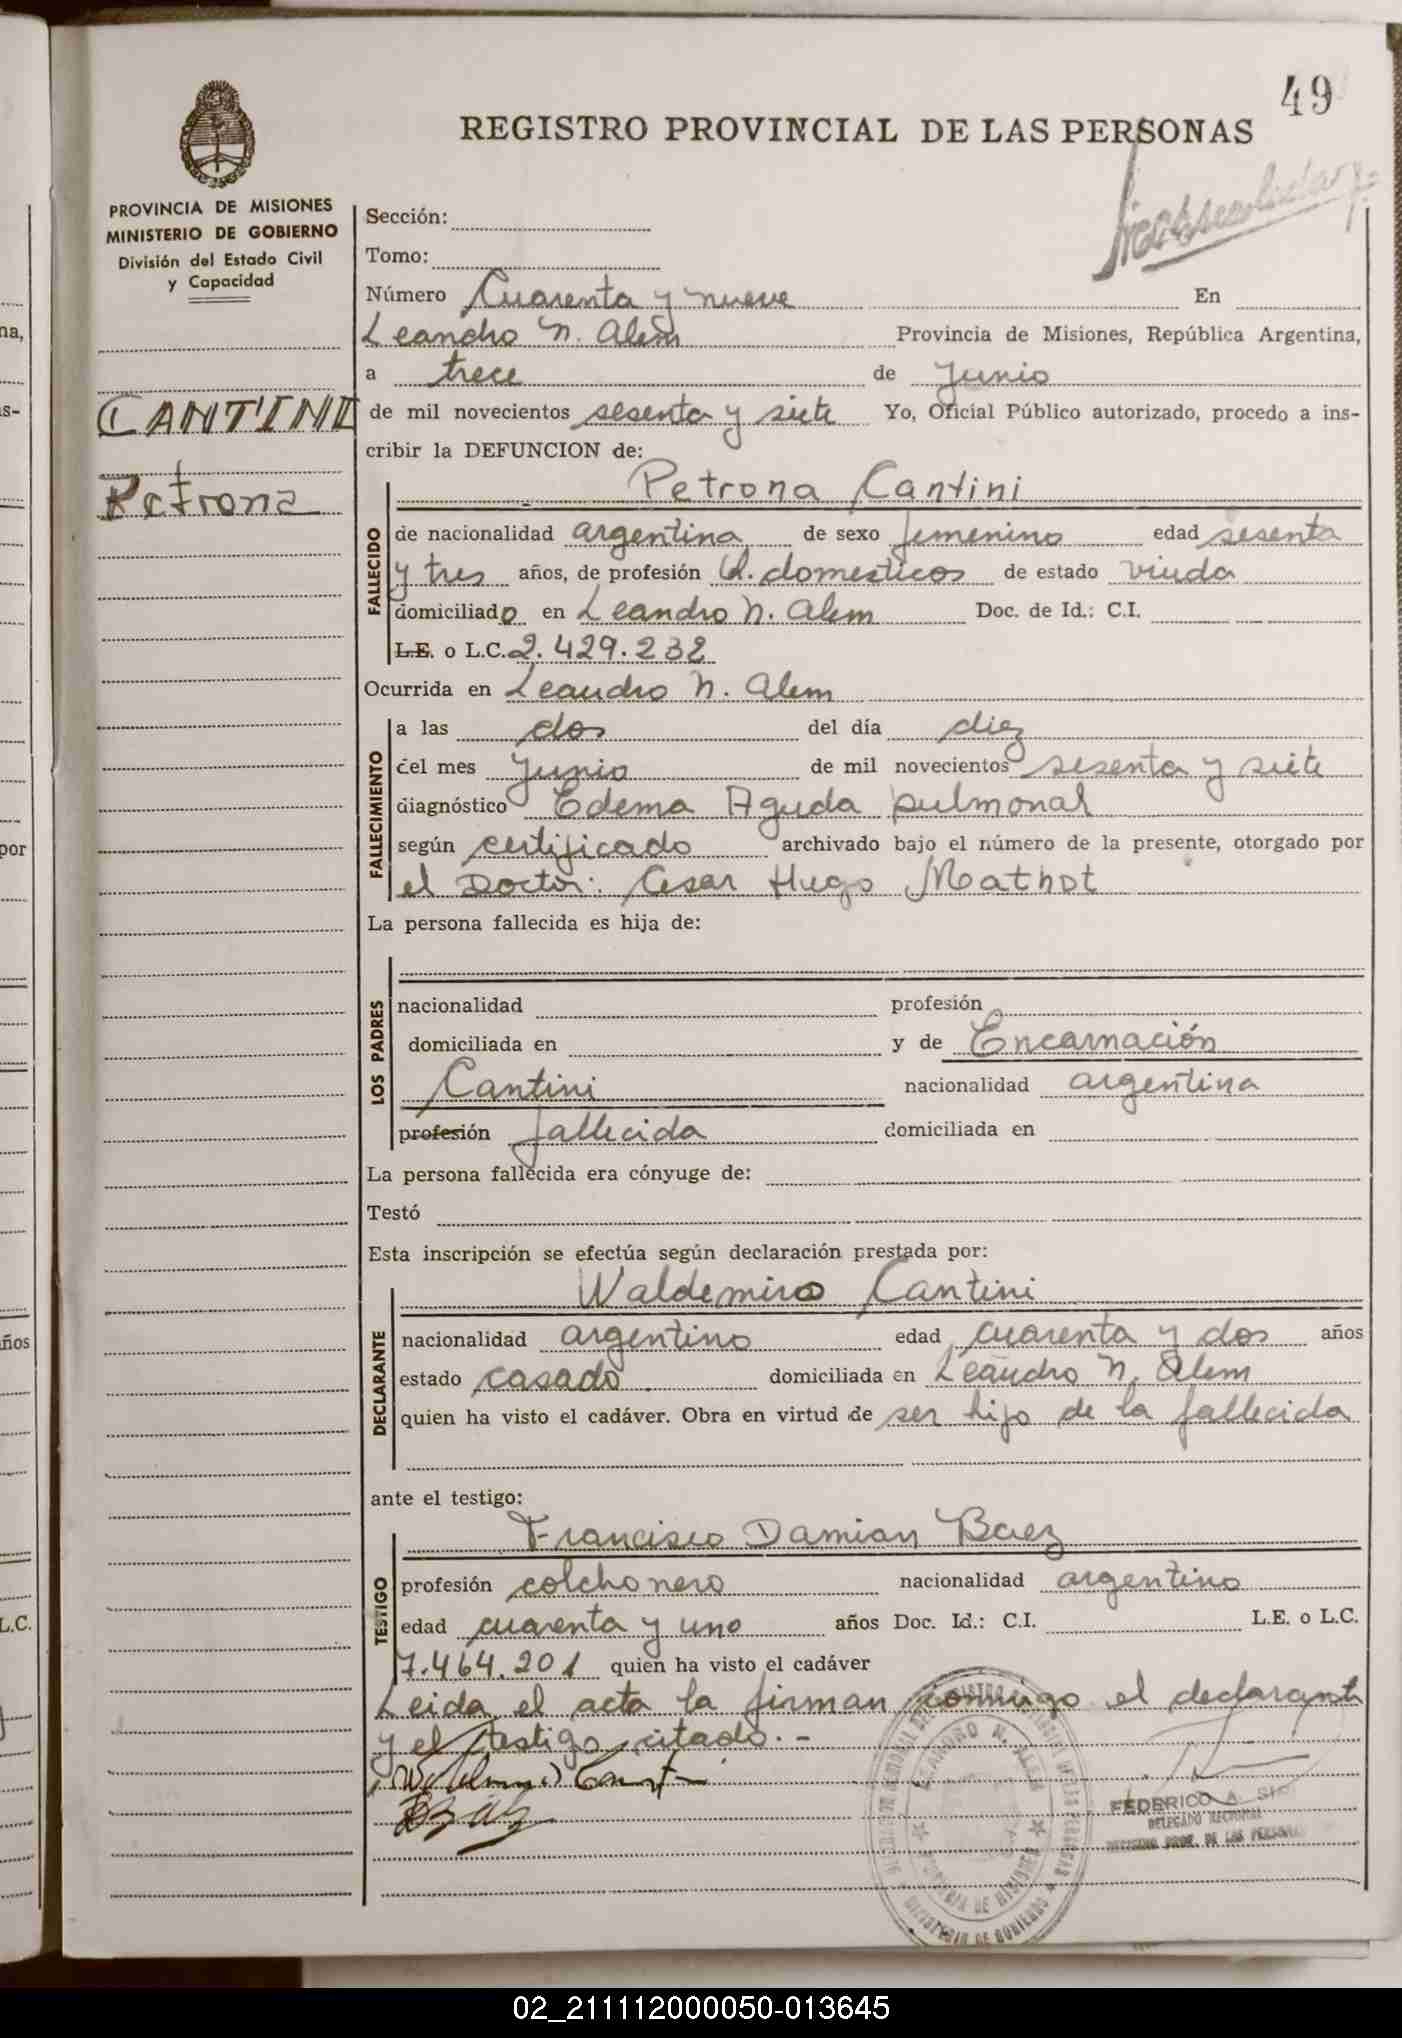 49
REGISTRO PROVINCIAL DE LAS PERSONAS
PROVINCIA DE MISIONES
MINISTERIO DE GOBIERNO
División del Estado Civil
y Capacidad
CANTINI
Petrona
Sección:
Tomo:
Número Cuarenta y nueve En
Leandro N. Alem Provincia de Misiones, República Argentina,
a trece de Junio
de mil novecientos sesenta y siete Yo, Oficial Público autorizado, procedo a ins-
cribir la DEFUNCION de:
Petrona Cantini
FALLECIDO
de nacionalidad argentina de sexo femenino edad sesenta
y tres años, de profesión Q. domesticos de estado viuda
domiciliado en Leandro N. Alem Doc. de Id.: C.I.
L.E. o L.C. 2.429.232
Ocurrida en Leandro N. Alem
FALLECIMIENTO
a las dos del día diez
del mes Junio de mil novecientos sesenta y siete
diagnóstico Edema Aguda pulmonal
según certificado archivado bajo el número de la presente, otorgado por
el Doctor: Cesar Hugo Mathot
La persona fallecida es hija de:
LOS PADRES
nacionalidad profesión
domiciliada en y de Encarnación
Cantini nacionalidad argentina
profesión fallecida domiciliada en
La persona fallecida era cónyuge de:
Testó
Esta inscripción se efectúa según declaración prestada por:
Waldemiro Cantini
DECLARANTE
nacionalidad argentino edad cuarenta y dos años
estado casado domiciliada en Leandro N. Alem
quien ha visto el cadáver. Obra en virtud de ser hijo de la fallecida
ante el testigo:
Francisco Damian Baez
TESTIGO
profesión colchonero nacionalidad argentino
edad cuarenta y uno años Doc. Id.: C.I. L.E. o L.C.
7.464.201 quien ha visto el cadáver
Leida el acta la firman conmigo el declarante
y el testigo citado.-
FEDERICO A.
DELEGADO
LEANDRO N. ALEM
PROVINCIA DE MISIONES
MINISTERIO DE GOBIERNO
na,
s-
por
ños
L.C.
02_211112000050-013645